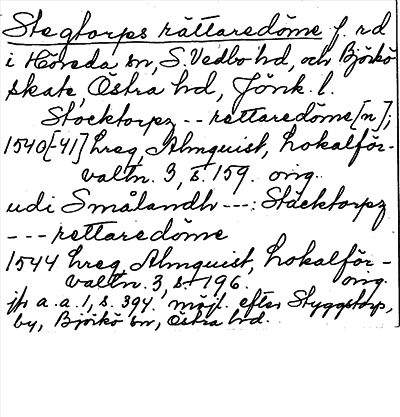 Stegtorps rättaredöme f. rd
i Höreda sn, S. Vedbo hd, och Björkö
skate, Östra hd, Jönk. l.
Stocktorpz -- rettaredöme[n];
1540[-41] Lreg, Almquist, Lokalför-
valtn. 3, s. 159. orig.
udi Smålandh ---: Stäcktorpz
--- rettaredöme
1544 Lreg, Almquist, Lokalför-
valtn. 3, s. 196. orig.
jfr a. a. 1, s. 394. möjl. efter Styggstorp,
by, Björkö sn, Östra hd.